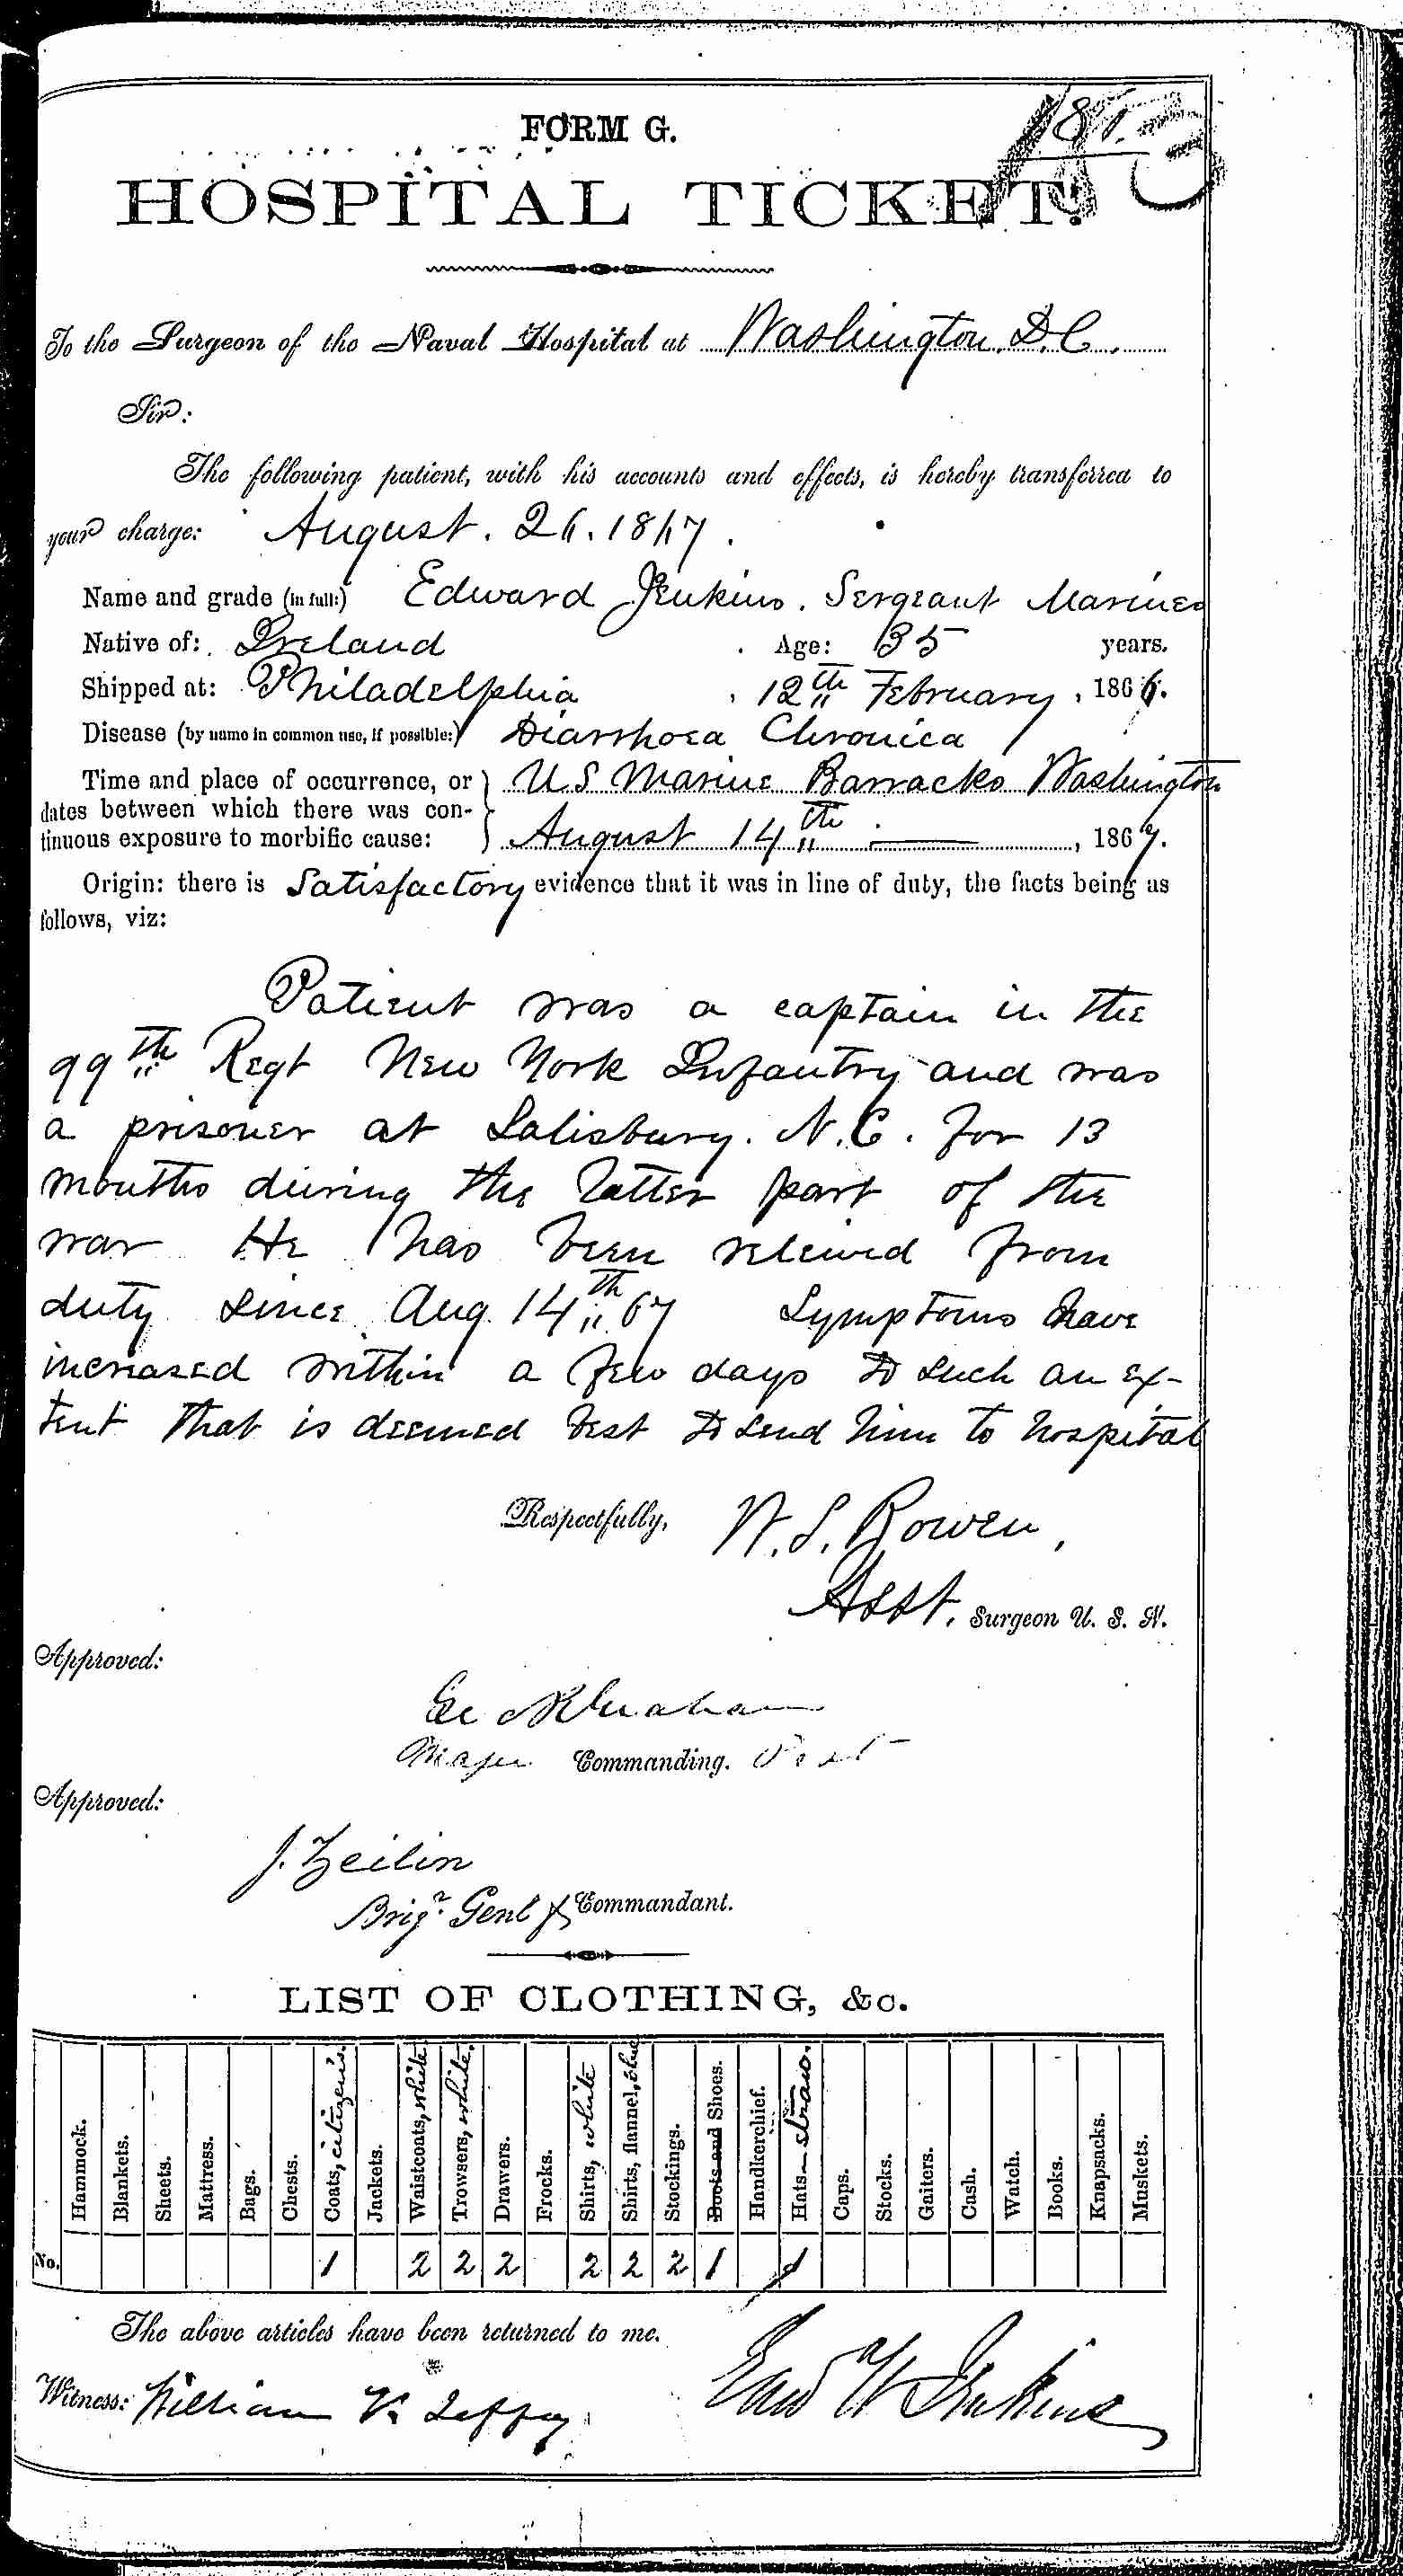 FORM G.
187.
HOSPITAL TICKET.
To the Surgeon of the Naval Hospital at Washington. D.C.
Sir:
The following patient, with his accounts and effects, is hereby transferred to
your charge: August. 26. 1867.
Name and grade (in full:) Edward Jenkins. Sergeant Marines
Native of: Ireland. Age: 35 years.
Shipped at: Philadelphia, 12th February, 1866.
Disease (by name in common use, if possible:) Diarrhoea Chronica
Time and place of occurrence, or U.S Marine Barracks Washington
dates between which there was con-
tinuous exposure to morbific cause: August 14th 1867.
Origin: there is Satisfactory evidence that it was in line of duty, the facts being as
follows, viz:
Patient was a captain in the
99th Regt New York Infantry and was
a prisoner at Salisbury. N.C. for 13
months during the latter part of the
war He has been releived from
duty since Aug. 14th 67 Symptoms have
increased within a few days to such an ex-
tent that is deemed best to send him to hospital
Respectfully, W. S. Bowen,
Asst. Surgeon U. S. N.
Approved:
Geo R Graham
Major Commanding. Post
Approved:
J. Zeilin
Brigr. Genl & Commandant.
LIST OF CLOTHING, &c.
Hammock. Blankets. Sheets. Mattress. Bags. Chests. Coats, citizen's. Jackets. Waistcoats, white Trowsers, white. Drawers. Frocks. Shirts, white Shirts, flannel, blue Stockings. Boots and Shoes. Handkerchief. Hats—straw. Caps. Stocks. Gaiters. Cash. Watch. Books. Knapsacks. Muskets.
No. 1 2 2 2 2 2 2 1 1
The above articles have been returned to me.
Witness: William Edwd W Jenkins